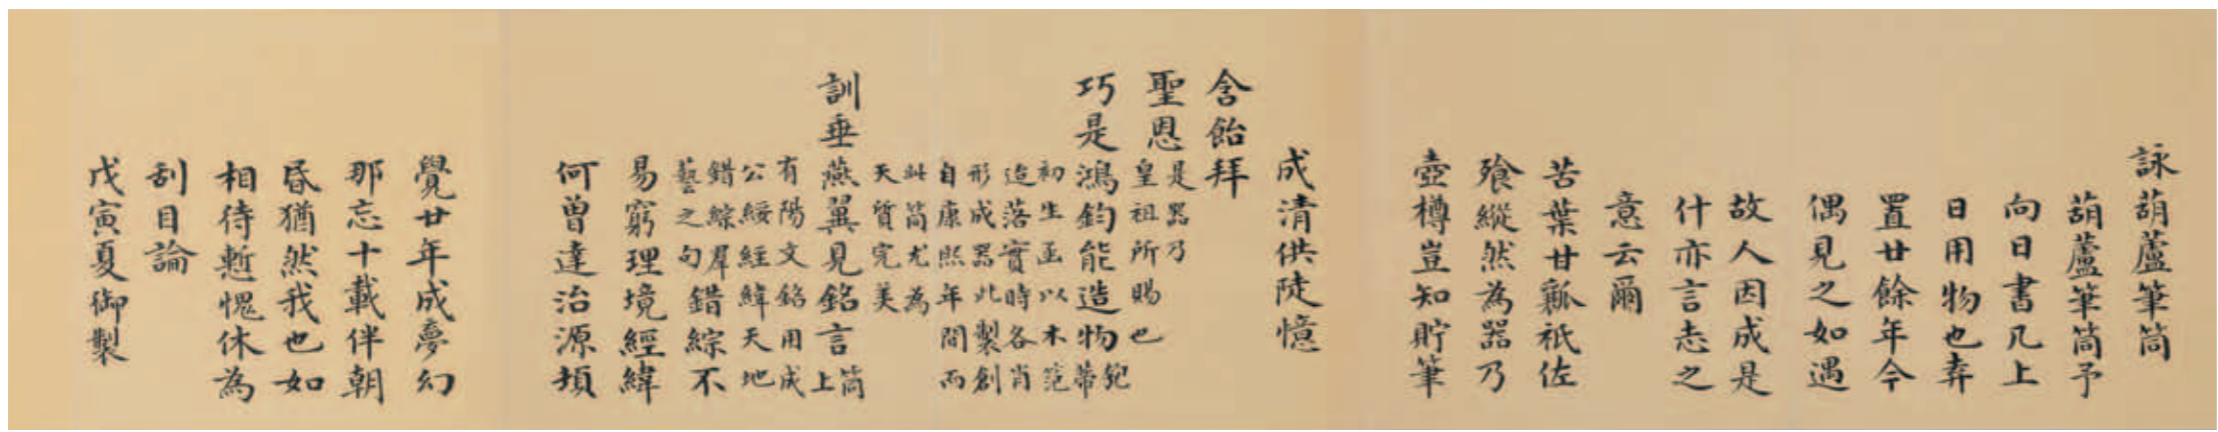 詠葫蘆筆筒
葫蘆筆筒予
向日書几上
日用物也弆
置廿餘年今
偶見之如遇
故人因成是
什亦言志之
意云爾
苦葉甘瓤祇佐
飱縱然為器乃
壺樽豈知貯筆
成清供陡憶
含飴拜
聖恩是器乃
皇祖所賜也
巧是鴻鈞能造物匏蒂
初生函以木笵
迨落實時各肖
形成器此製創
自康熙年間而
此筒尤為
天質完美
訓垂燕翼見銘言筒上
有陽文銘用成
公綏經緯天地
錯綜羣
藝之句錯綜不
易窮理境經緯
何曾達治源頫
覺廿年成夢幻
那忘十載伴朝
昏猶然我也如
相待慙愧休為
刮目論
戊寅夏御製